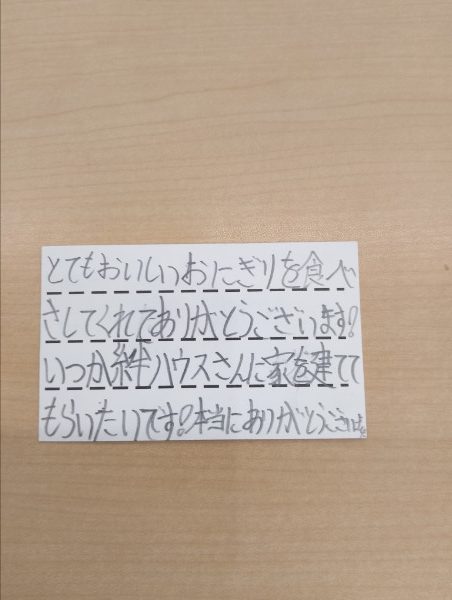 とてもおいしいおにぎりを食べ
さしてくれてありがとうございます!
いつか絆ハウスさんに家を建てて
もらいたいです!本当にありがとうございました